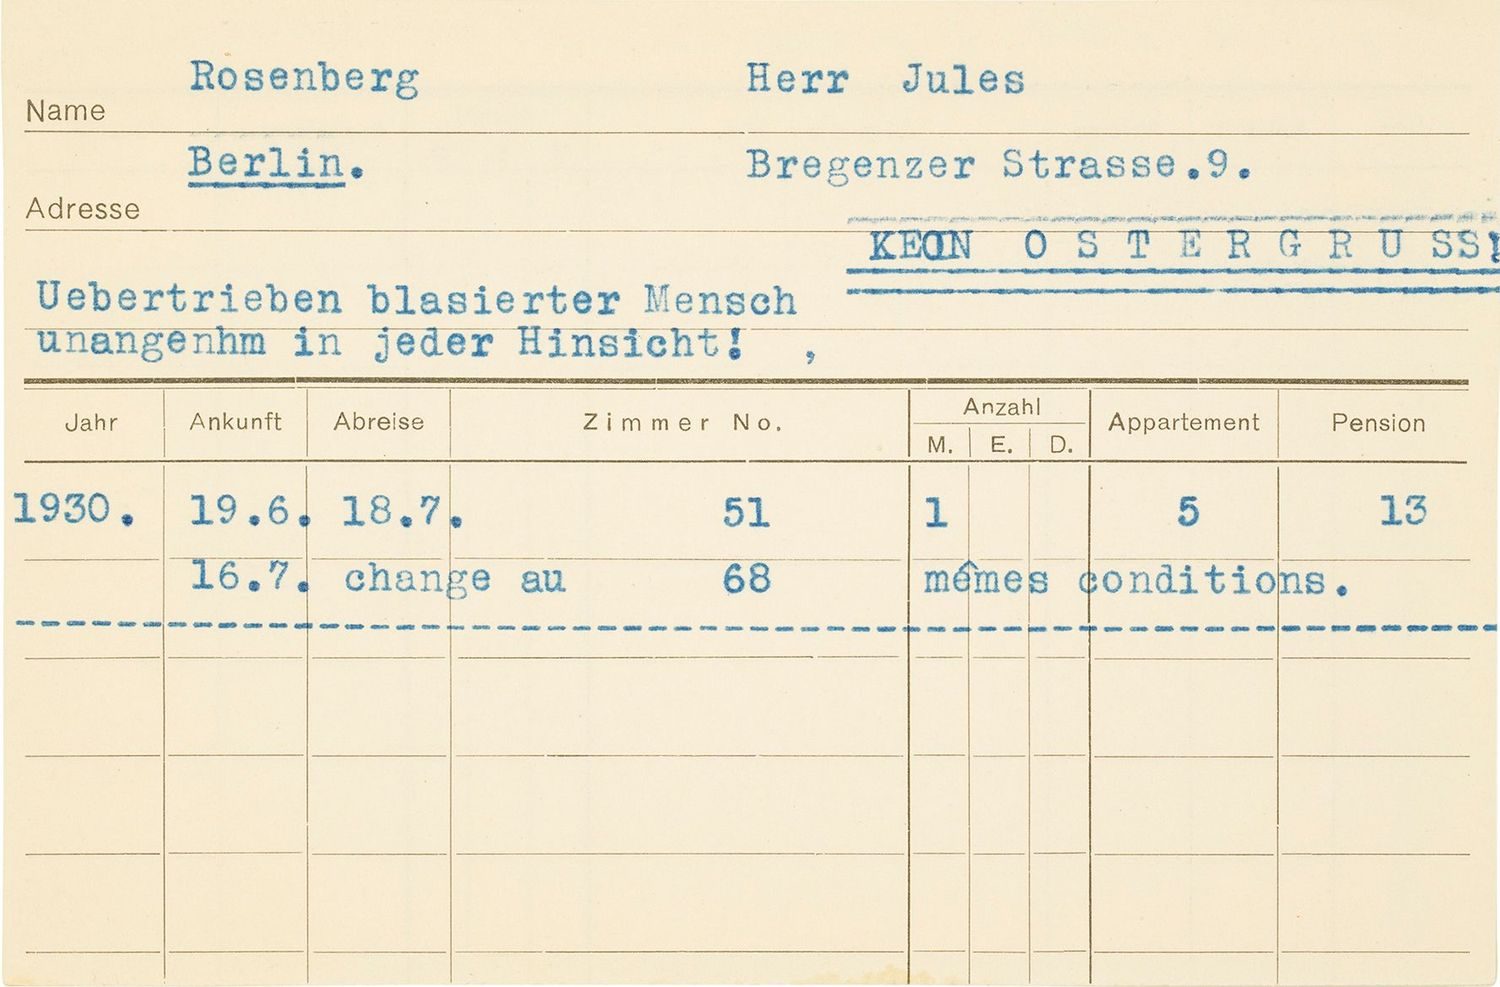 Rosenberg Herr Jules
Name
Berlin. Bregenzer Strasse.9.
Adresse
KEIN O S T E R G R U SS!
Uebertrieben blasierter Mensch
unangenhm in jeder Hinsicht! ,
Jahr Ankunft Abreise Zimmer No. Anzahl M. E. D. Appartement Pension
1930. 19.6. 18.7. 51 1 5 13
16.7. change au 68 mêmes conditions.